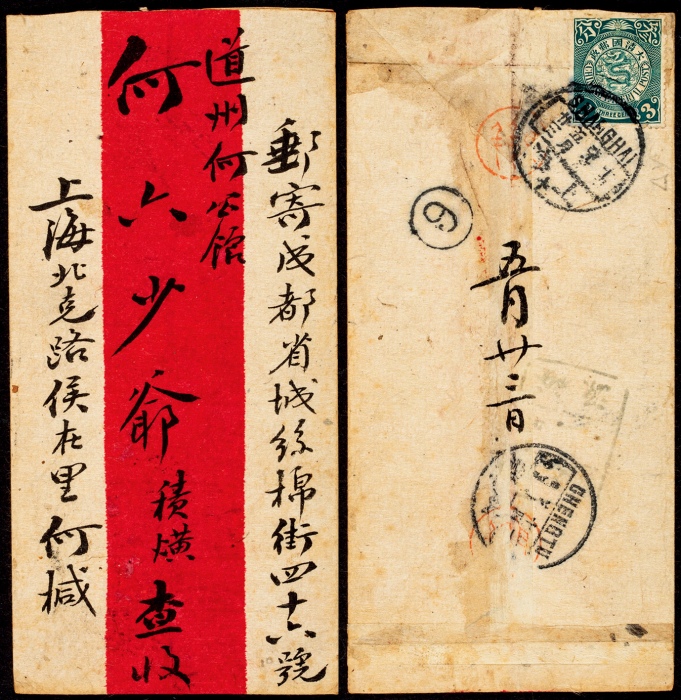 郵寄成都省城絲棉街四十六號
道州何公館
何六少爺積熿查收
上海北克路侯在里何椷
大清國郵政
3
SHANGHAI
6
五月廿三日
CHENGTU